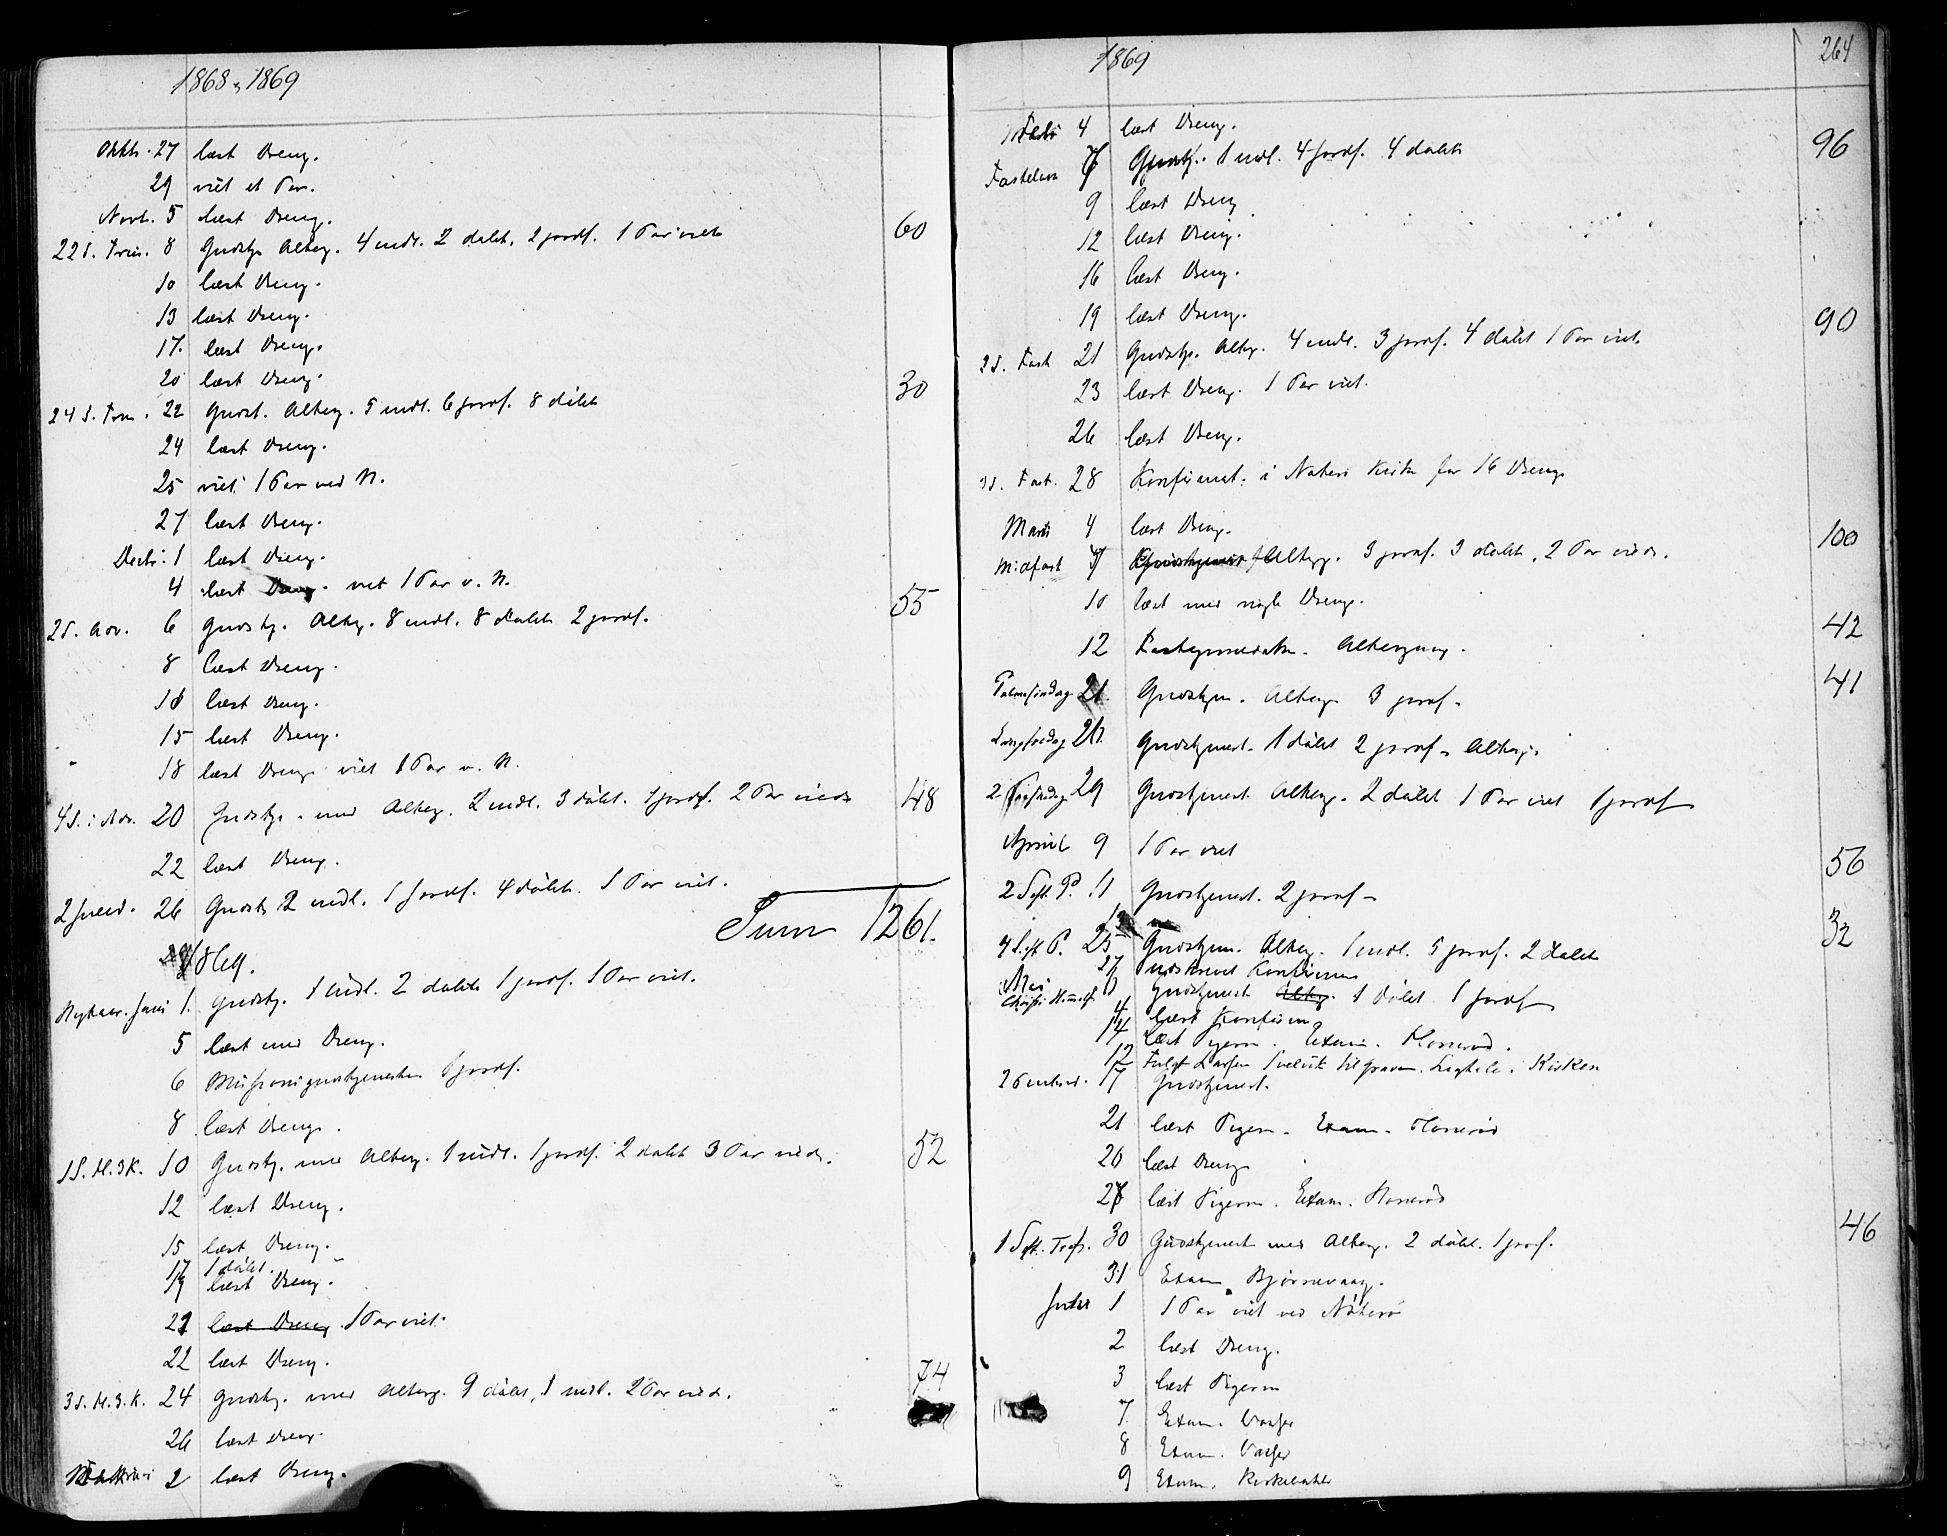 1868 & 1869
Oktb. 27 læst Dreng.
29 viet et Par.
Novb. 5 læst Dreng.
22 S. Trin. 8 Gudstj. Alterg. 4 indl. 2 døbt. 2 jordf. 1 Par viet 60
10 læst Dreng.
13 læst Dreng.
17. læst Dreng.
20 læst Dreng.
24 S. Trin. 22 Gudst. Alterg. 5 indl. 6 jordf. 8 døbt 30
24 læst Dreng.
25 viet 1 Par ved N.
27 læst Dreng.
Decbr. 1 læst Dreng.
4 læst Dreng. viet 1 Par v. N.
2 S. Adv. 6 Gudstj. Alterg. 8 indl. 8 døbt 2 jordf. 55
8 læst Dreng.
11 læst Dreng.
15 læst Dreng.
18 læst Dreng viet 1 Par v. N.
4 S. i Adv. 20 Gudstj. med Alterg. 2 indl. 3 døbt. 1 jordf. 2 Par viede 48
22 læst Dreng.
2 Juled. 26 Gudst. 2 indl. 1 jordf. 4 døbt. 1 Par viet.
Sum 1261.
1869.
Nytaar. Jani 1. Gudstj. 1 indl. 2 døbt 1 jordf. 1 Par viet.
5 læst med Dreng.
6 Missionsgudstjeneste 1 jordf.
8 læst Dreng.
1 S. H. 3 K. 10 Gudstj. med Alterg. 1 indl. 1 jordf. 2 døbt 3 Par viede. 52
12 læst Dreng.
15 læst Dreng.
17 1 døbt.
19 læst Dreng.
21 læst Dreng. 1 Par viet.
22 læst Dreng.
3 S. H. 3. K. 24 Gudstj. med Alterg. 9 døbt, 1 indl. 2 Par viede. 74
26 læst Dreng.
2 læst Dreng.
1869
264
Febr 4 læst Dreng.
Fastelavn 7 Gudstj. 1 indl. 4 jordf. 4 døbt 96
9 læst Dreng
12 læst Dreng.
16 læst Dreng.
19 læst Dreng.
2 S. Fast 21 Gudstj. Alterg. 4 indl. 3 jordf. 4 døbt 1 Par viet. 90
23 læst Dreng. 1 Par viet.
26 læst Dreng.
3 S. Fast. 28 Konfirmat. i Nøterø Kirke for 16 Dreng
Marts 4 læst Dreng.
Midfast 7 Alterg. 3 jordf. 3 døbt, 2 Par viede. 100
10 læst med nogle Drenge.
12 Fasteprædiken. Altergang. 42
Palmesøndag 21. Gudstjen. Alterg 3 jordf. 41
Langfredag 26. Gudstjenest. 1 døbt 2 jordf. Alterg.
2. Paaskedag 29 Gudstjenest. Alterg. 2 døbt 1 Par viet 1 jordf
April 9 1 Par viet
2 S. eft. P. 11 Gudstjenest. 2 jordf. 56
4 S. eft P. 25 Gudstjen. Alterg. 1 indl. 5 jordf. 2 døbt 32
27 indskrevet Konfirmer
Mai
Christi Himmelf 6 Gudstjenest Alterg. 1 døbt 1 jordf
læst Konfirm
14 læst Pigern. Exam.
12 Fulgt Larsen til Graven. Ligtale i Kirken
2 Pintsed. 17 Gudstjenest.
21 læst Pigern. Exam.
20 læst Dreng
28 læst Pigern. Exam.
1 S. eft. Tref. 30 Gudstjenest med Alterg. 2 døbt. 1 jordf. 46
31 Exam Bjørnevaag.
Juni 1 1 Par viet ved Nøterø
2 læst Dreng.
3 læst Pigern
7. Exam.
8 Exam.
9 Exam.